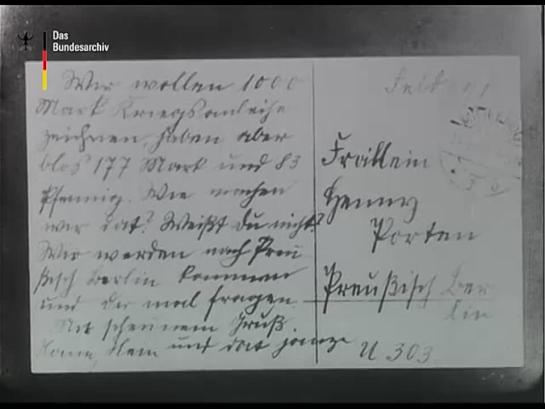 Das
Bundesarchiv
Wir wollen 1000
Mark Kriegsanleihe
zeichnen, haben aber
blos 177 Mark und 83
Pfennig. Wie machen
wir dat? Weißt du nicht?
Wir werden nach Preu
ßisch Berlin kommen
und dir mal fragen
Mit scheenem Gruß.
und dat janze
U 303
Fräulein
Henny
Porten
Preußisch Ber
lin